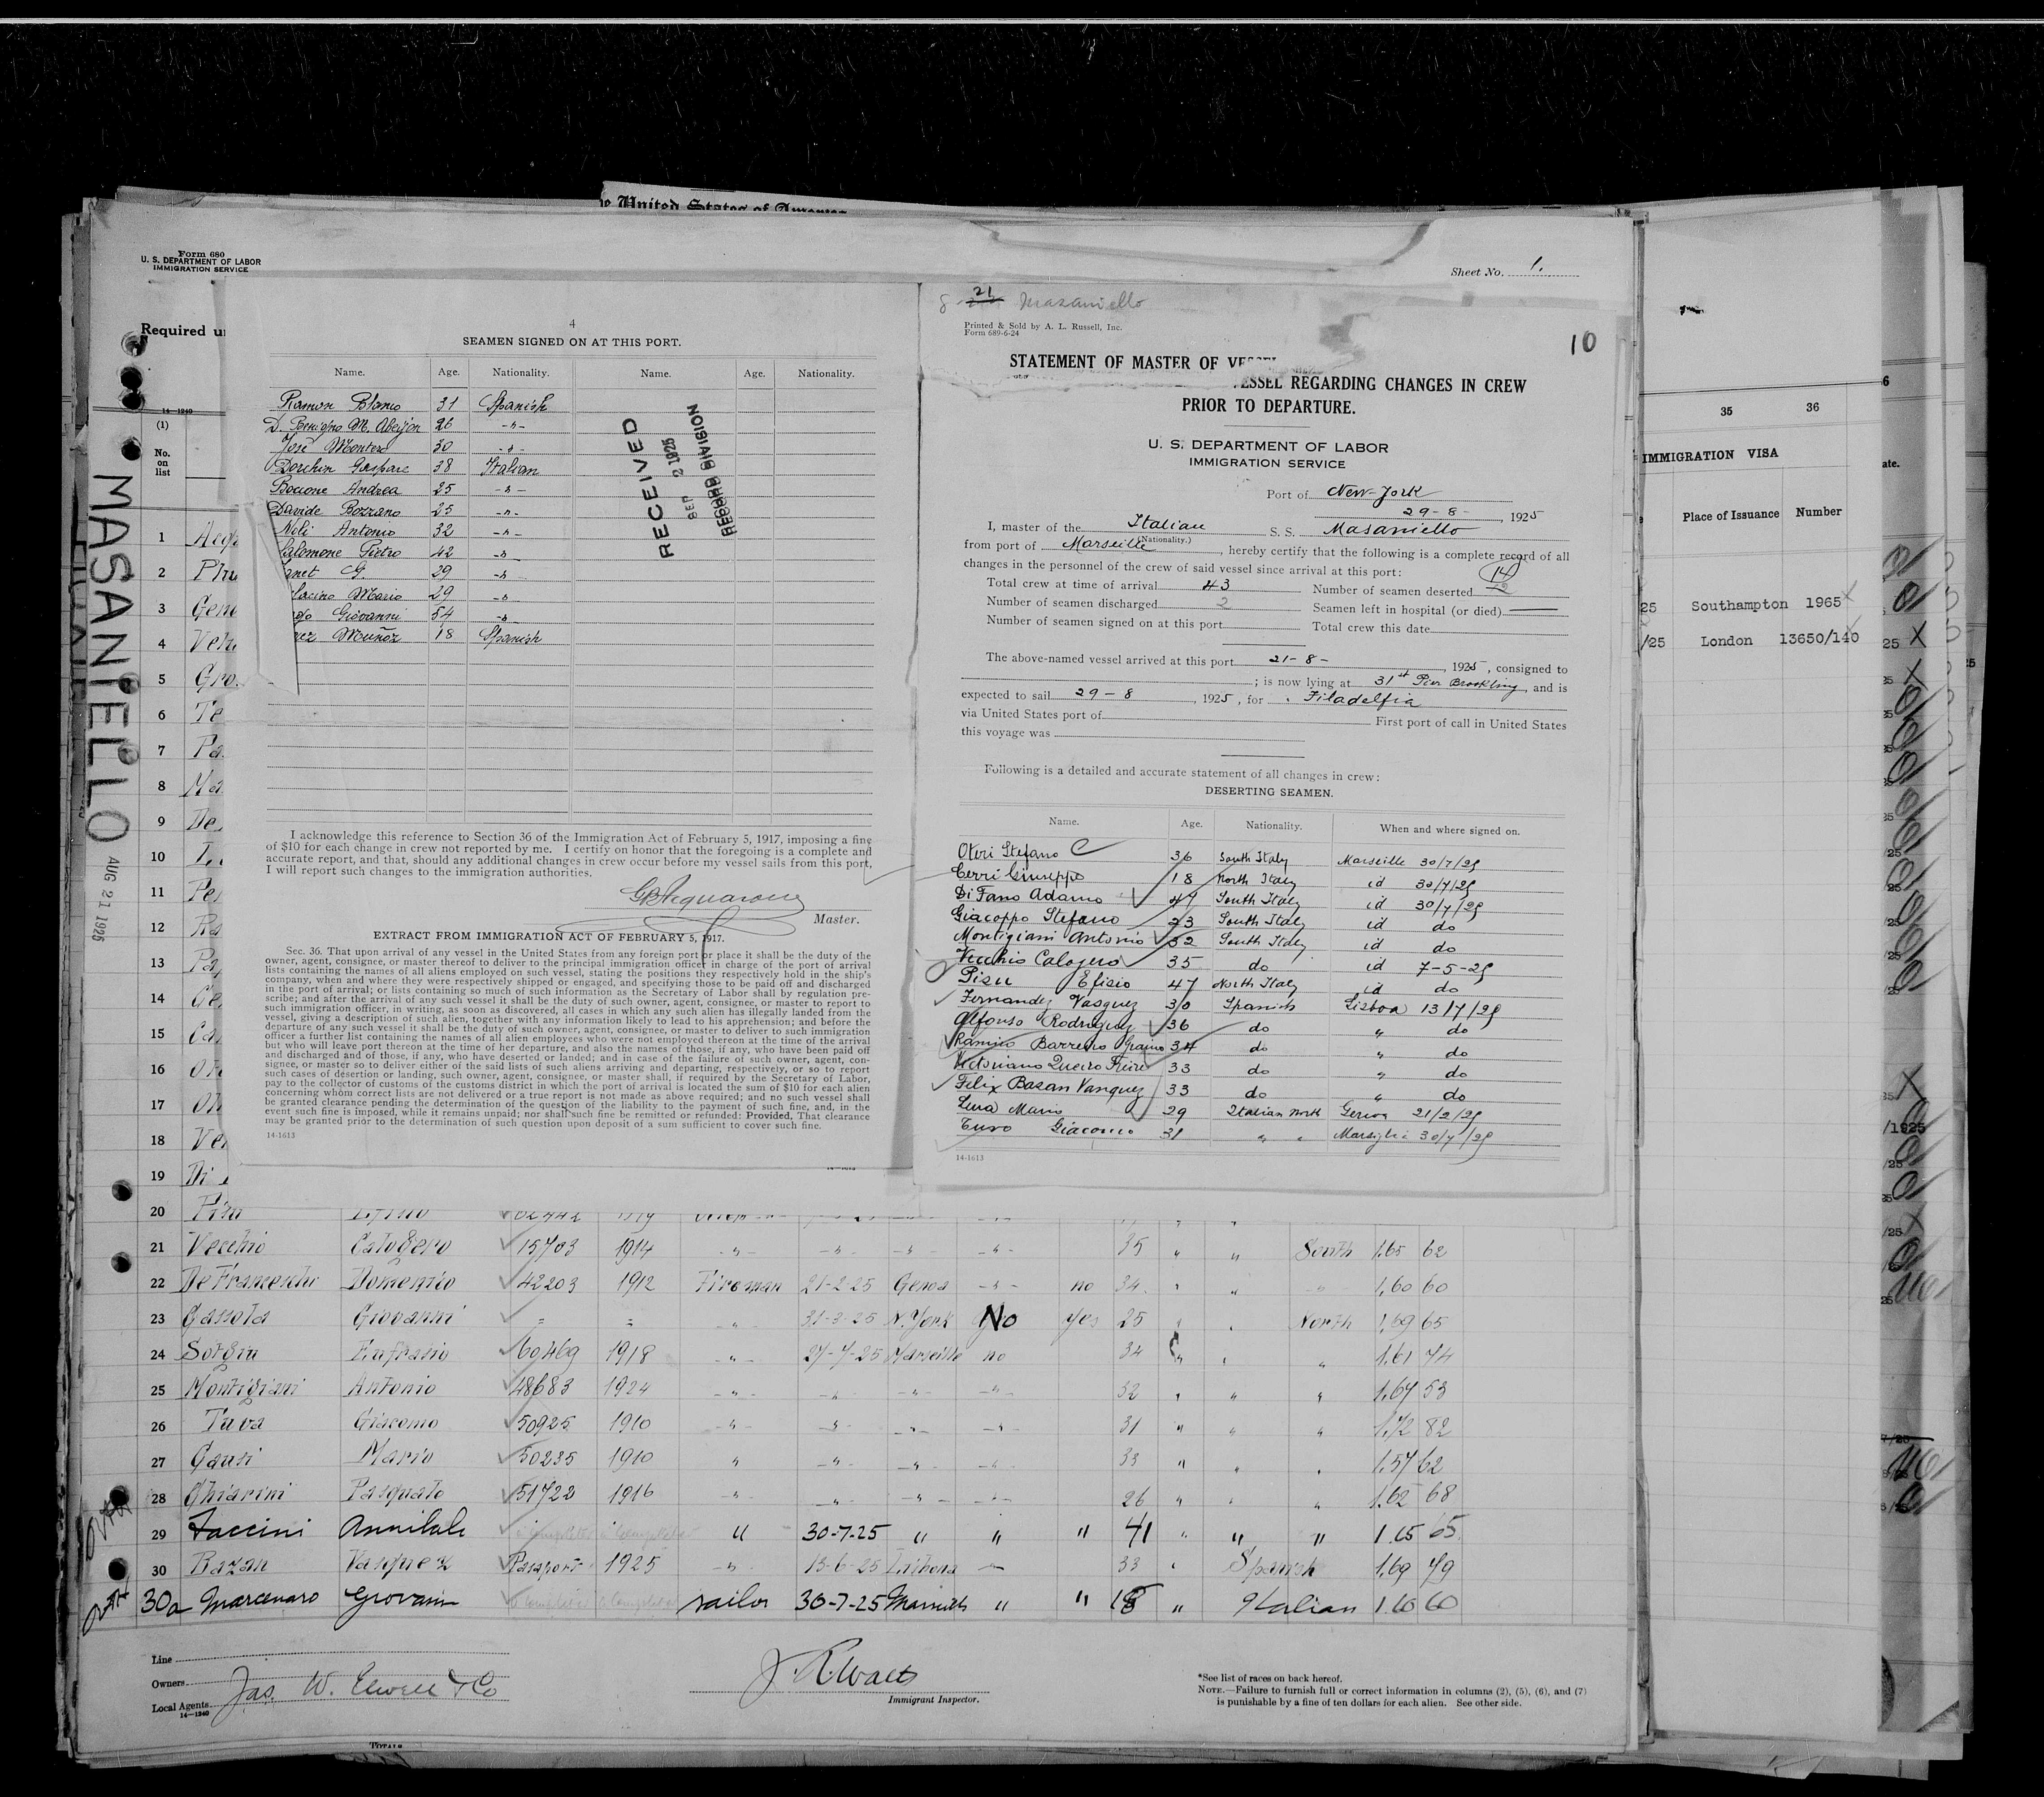 United States of America
Form 680
U. S. DEPARTMENT OF LABOR
IMMIGRATION SERVICE
Sheet No. 1.
Required
14—1240
(1)
No.
on
list
MASANIELLO
AUG 21 1925
4
SEAMEN SIGNED ON AT THIS PORT.
Name. Age. Nationality. Name. Age. Nationality.
Ramon Blanco 31 Spanish
D. Benigno M. Abeijon 26 -"-
José Montero 30 -"-
Dorchin Gaspare 38 Italian
Boccone Andrea 25 -"-
Davide Bozzano 25 -"-
Noli Antonio 32 -"-
Salomone Pietro 42 -"-
G. 29 -"-
Mario 29 -"-
Giovanni 54 -"-
Muñoz 18 Spanish
RECEIVED
SEP 2 1925
RECORD DIVISION
I acknowledge this reference to Section 36 of the Immigration Act of February 5, 1917, imposing a fine
of $10 for each change in crew not reported by me. I certify on honor that the foregoing is a complete and
accurate report, and that, should any additional changes in crew occur before my vessel sails from this port,
I will report such changes to the immigration authorities.
Master.
EXTRACT FROM IMMIGRATION ACT OF FEBRUARY 5, 1917.
Sec. 36. That upon arrival of any vessel in the United States from any foreign port or place it shall be the duty of the
owner, agent, consignee, or master thereof to deliver to the principal immigration officer in charge of the port of arrival
lists containing the names of all aliens employed on such vessel, stating the positions they respectively hold in the ship's
company, when and where they were respectively shipped or engaged, and specifying those to be paid off and discharged
in the port of arrival; or lists containing so much of such information as the Secretary of Labor shall by regulation pre-
scribe; and after the arrival of any such vessel it shall be the duty of such owner, agent, consignee, or master to report to
such immigration officer, in writing, as soon as discovered, all cases in which any such alien has illegally landed from the
vessel, giving a description of such alien, together with any information likely to lead to his apprehension; and before the
departure of any such vessel it shall be the duty of such owner, agent, consignee, or master to deliver to such immigration
officer a further list containing the names of all alien employees who were not employed thereon at the time of the arrival
but who will leave port thereon at the time of her departure, and also the names of those, if any, who have been paid off
and discharged and of those, if any, who have deserted or landed; and in case of the failure of such owner, agent, con-
signee, or master so to deliver either of the said lists of such aliens arriving and departing, respectively, or so to report
such cases of desertion or landing, such owner, agent, consignee, or master shall, if required by the Secretary of Labor,
pay to the collector of customs of the customs district in which the port of arrival is located the sum of $10 for each alien
concerning whom correct lists are not delivered or a true report is not made as above required; and no such vessel shall
be granted clearance pending the determination of the question of the liability to the payment of such fine, and, in the
event such fine is imposed, while it remains unpaid; nor shall such fine be remitted or refunded: Provided, That clearance
may be granted prior to the determination of such question upon deposit of a sum sufficient to cover such fine.
14-1613
8 21 Masaniello
Printed & Sold by A. L. Russell, Inc.
Form 689-6-24
10
STATEMENT OF MASTER OF VESSEL
VESSEL REGARDING CHANGES IN CREW
PRIOR TO DEPARTURE.
U. S. DEPARTMENT OF LABOR
IMMIGRATION SERVICE
Port of New-York
29-8-, 1925
I, master of the Italian S. S. Masaniello
(Nationality.)
from port of Marseille, hereby certify that the following is a complete record of all
changes in the personnel of the crew of said vessel since arrival at this port:
Total crew at time of arrival 43 Number of seamen deserted 14
Number of seamen discharged 2 Seamen left in hospital (or died)
Number of seamen signed on at this port Total crew this date
The above-named vessel arrived at this port 21-8-, 1925, consigned to
; is now lying at 31st Pier Brookling, and is
expected to sail 29-8, 1925, for Filadelfia
via United States port of First port of call in United States
this voyage was
Following is a detailed and accurate statement of all changes in crew:
DESERTING SEAMEN.
Name. Age. Nationality. When and where signed on.
Oteri Stefano 36 South Italy Marseille 30/7/25
Cerri Giuseppe 18 North Italy id 30/7/25
Di Fano Adamo 47 South Italy id 30/7/25
Giacoppo Stefano 23 South Italy id do
Montigiani Antonio 32 South Italy id do
Vecchio Calogero 35 do id 7-5-25
Pisu Efisio 47 North Italy id do
Fernandez Vasquez 30 Spanish Lisboa 13/7/25
Alfonso Rodriguez 36 do " do
Ramiro Barreiro Graino 34 do " do
Victoriano Queiro Freire 33 do " do
Felix Basan Vanquez 33 do " do
Luca Mario 29 Italian North Genoa 21/2/25
Tuvo Giacomo 31 " " Marsiglia 30/7/25
14-1613
6
35 36
IMMIGRATION VISA
Place of Issuance Number
25 Southampton 1965
/25 London 13650/140
1
2
3
4
5
6
7
8
9
10
11
12
13
14
15
16
17
18
19
20
21 Vecchio Calogero 15703 1914 -"- -"- -"- -"- 35 " " South 1.65 62
22 De Franceschi Domenico 42203 1912 Fireman 21-2-25 Genoa -"- no 34 " " " 1.60 60
23 Gassola Giovanni " " " 31-3-25 N.York No yes 25 " " North 1.69 65
24 Sorgiu Eufrasio 60469 1918 -"- 27-7-25 Marseille no 34 " " " 1.61 74
25 Montigiani Antonio 48683 1924 -"- -"- -"- -"- 32 " " " 1.67 53
26 Tuva Giacomo 50925 1910 -"- -"- -"- -"- 31 " " " 1.72 82
27 Gausi Mario 50235 1910 " -"- -"- -"- 33 " " " 1.57 62
28 Ghiarini Pasquale 51722 1916 -"- -"- -"- -"- 26 " " " 1.62 68
29 Faccini Annibale " 30-7-25 " " " 41 " " " 1.65 65
30 Bazan Vasquez Passport 1925 -"- 13-6-25 Lisbona 33 " Spanish 1.69 79
30a Marcenaro Giovanni sailor 30-7-25 " " 18 " Italian 1.60 60
Line
Owners
Local Agents Jas. W. Elwell & Co
14—1240
J. R. Walts
Immigrant Inspector.
*See list of races on back hereof.
NOTE.—Failure to furnish full or correct information in columns (2), (5), (6), and (7)
is punishable by a fine of ten dollars for each alien. See other side.
TOTALS